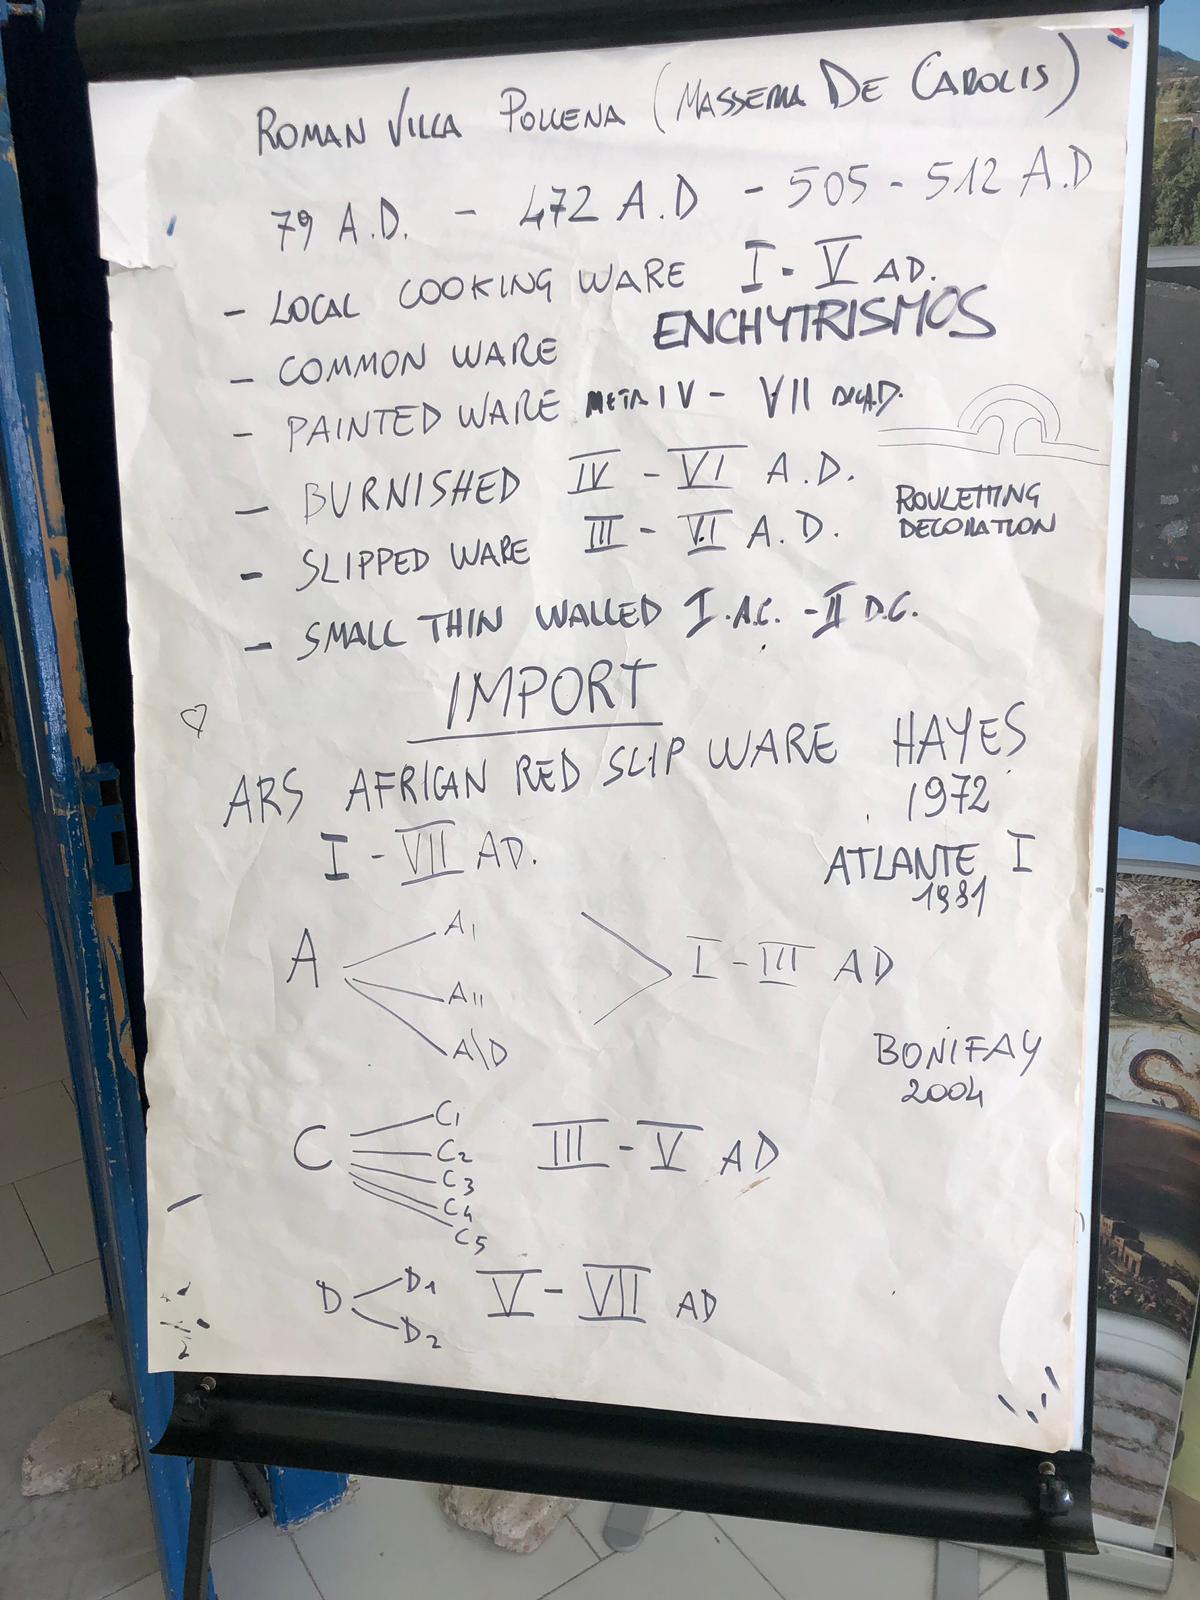 ROMAN VILLA POLLENA (MASSERIA DE CAROLIS)
79 A.D. - 472 A.D - 505 - 512 A.D
- LOCAL COOKING WARE I - V AD.
ENCHYTRISMOS
- COMMON WARE
- PAINTED WARE METÀ IV - VII A.D.
- BURNISHED IV - VI A.D.
ROULETTING
DECORATION
- SLIPPED WARE III - VI A.D.
- SMALL THIN WALLED I A.C. - II D.C.
IMPORT
ARS AFRICAN RED SLIP WARE HAYES
1972
I - VII AD.
ATLANTE I
1981
A A1
AII
A\D
I - III AD
BONIFAY
2004
C C1
C2
C3
C4
C5
III - V AD
D D1
D2
V - VII AD